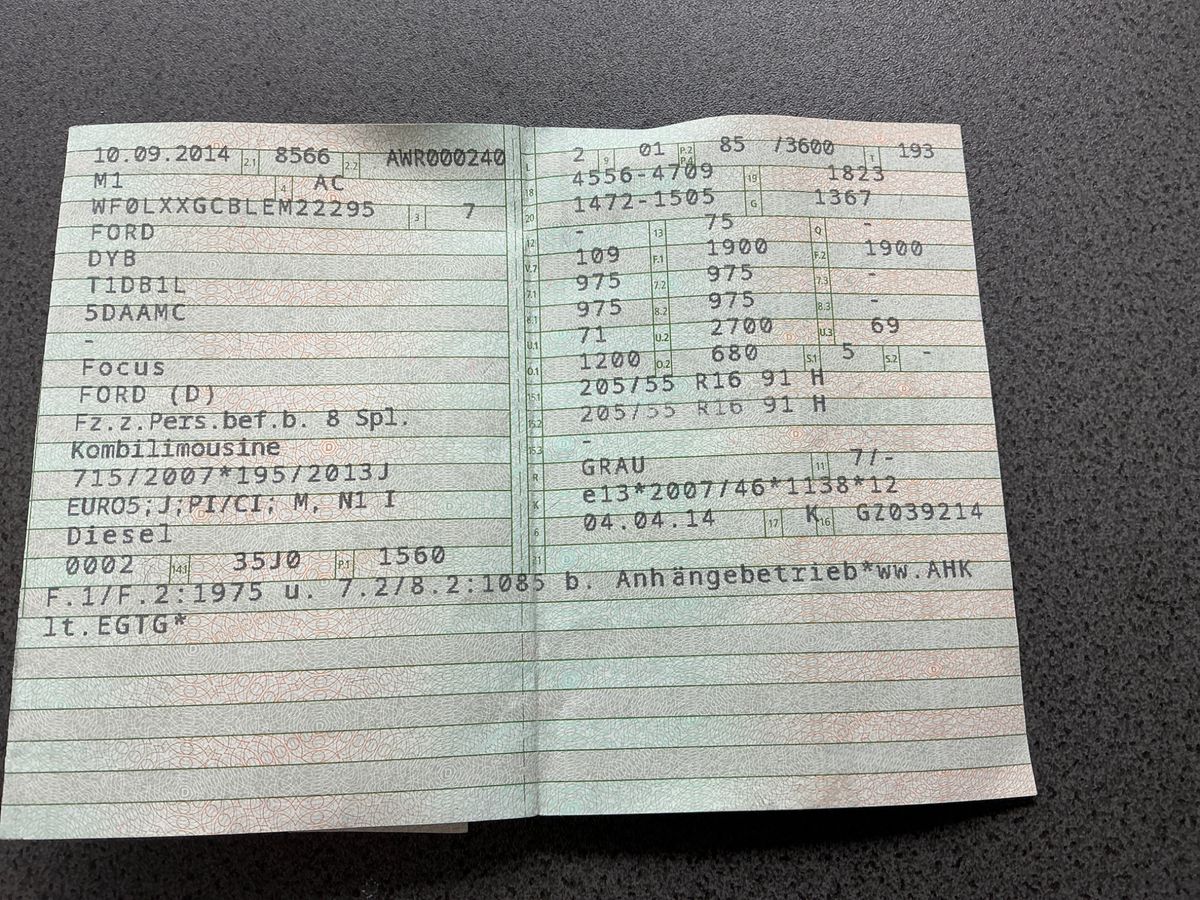 10.09.2014 2.1 8566 2.2 AWR000240
M1 4 AC
WF0LXXGCBLEM22295 3 7
FORD
DYB
T1DB1L
5DAAMC
-
Focus
FORD (D)
Fz.z.Pers.bef.b. 8 Spl.
Kombilimousine
715/2007*195/2013J
EURO5;J;PI/CI; M, N1 I
Diesel
0002 14.1 35J0 P.1 1560
L 2 9 01 P.2 P.4 85 /3600 T 193
18 4556-4709 19 1823
20 1472-1505 G 1367
12 - 13 75 Q -
V.7 109 F.1 1900 F.2 1900
7.1 975 7.2 975 7.3 -
8.1 975 8.2 975 8.3 -
U.1 71 U.2 2700 U.3 69
O.1 1200 O.2 680 S.1 5 S.2 -
15.1 205/55 R16 91 H
15.2 205/55 R16 91 H
15.3 -
R GRAU 11 7/-
K e13*2007/46*1138*12
6 04.04.14 17 K 16 GZ039214
21
F.1/F.2:1975 u. 7.2/8.2:1085 b. Anhängebetrieb*ww.AHK
lt.EGTG*